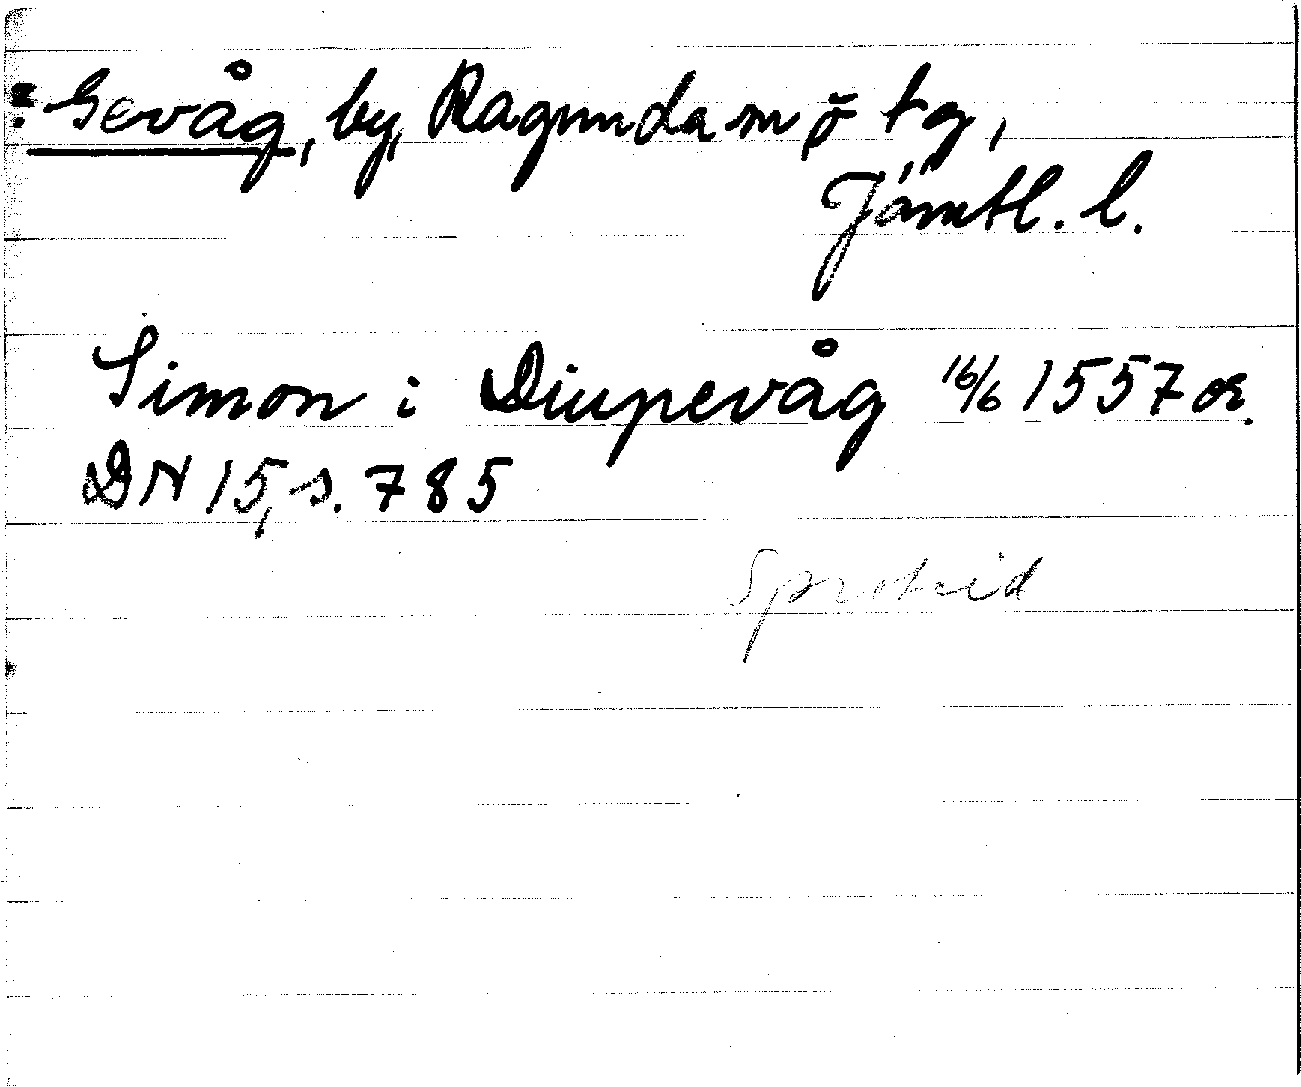 Gevåg, by, Ragunda sn o tg,
Jämtl. l.
Simon i Diupevåg 16/6 1557 or.
DN 15, s. 785